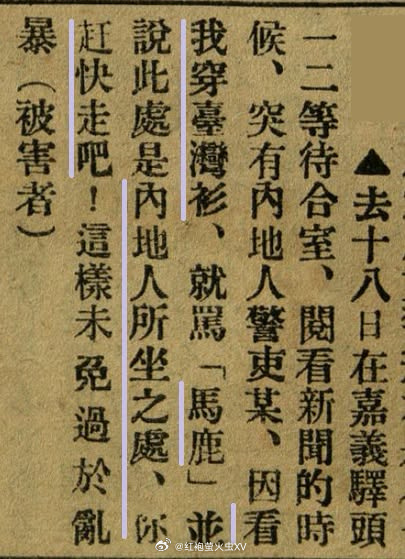 ▲去十八日在嘉義驛頭
一二等待合室、閱看新聞的時
候、突有內地人警吏某、因看
我穿臺灣衫、就罵「馬鹿」並
說此處是內地人所坐之處、你
赶快走吧！這樣未免過於亂
暴（被害者）
@红袍萤火虫XV